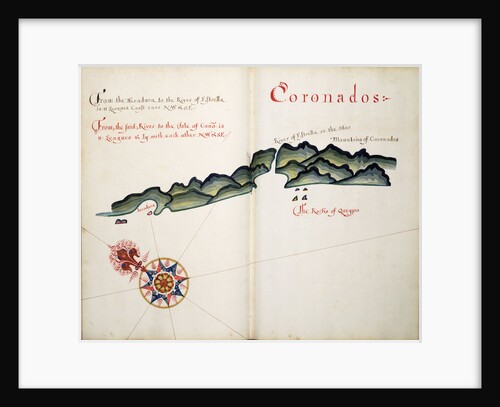 From the Heradura to the River of Estrella
is 11 Leagues Coast runs N.W. & S.E.
From the said River to the Isle of Cano is
11 Leagues & ly with each other N.W. & S.E.
Coronados
River of Estrella or the Star
Mountains of Coronados
The Rocks of